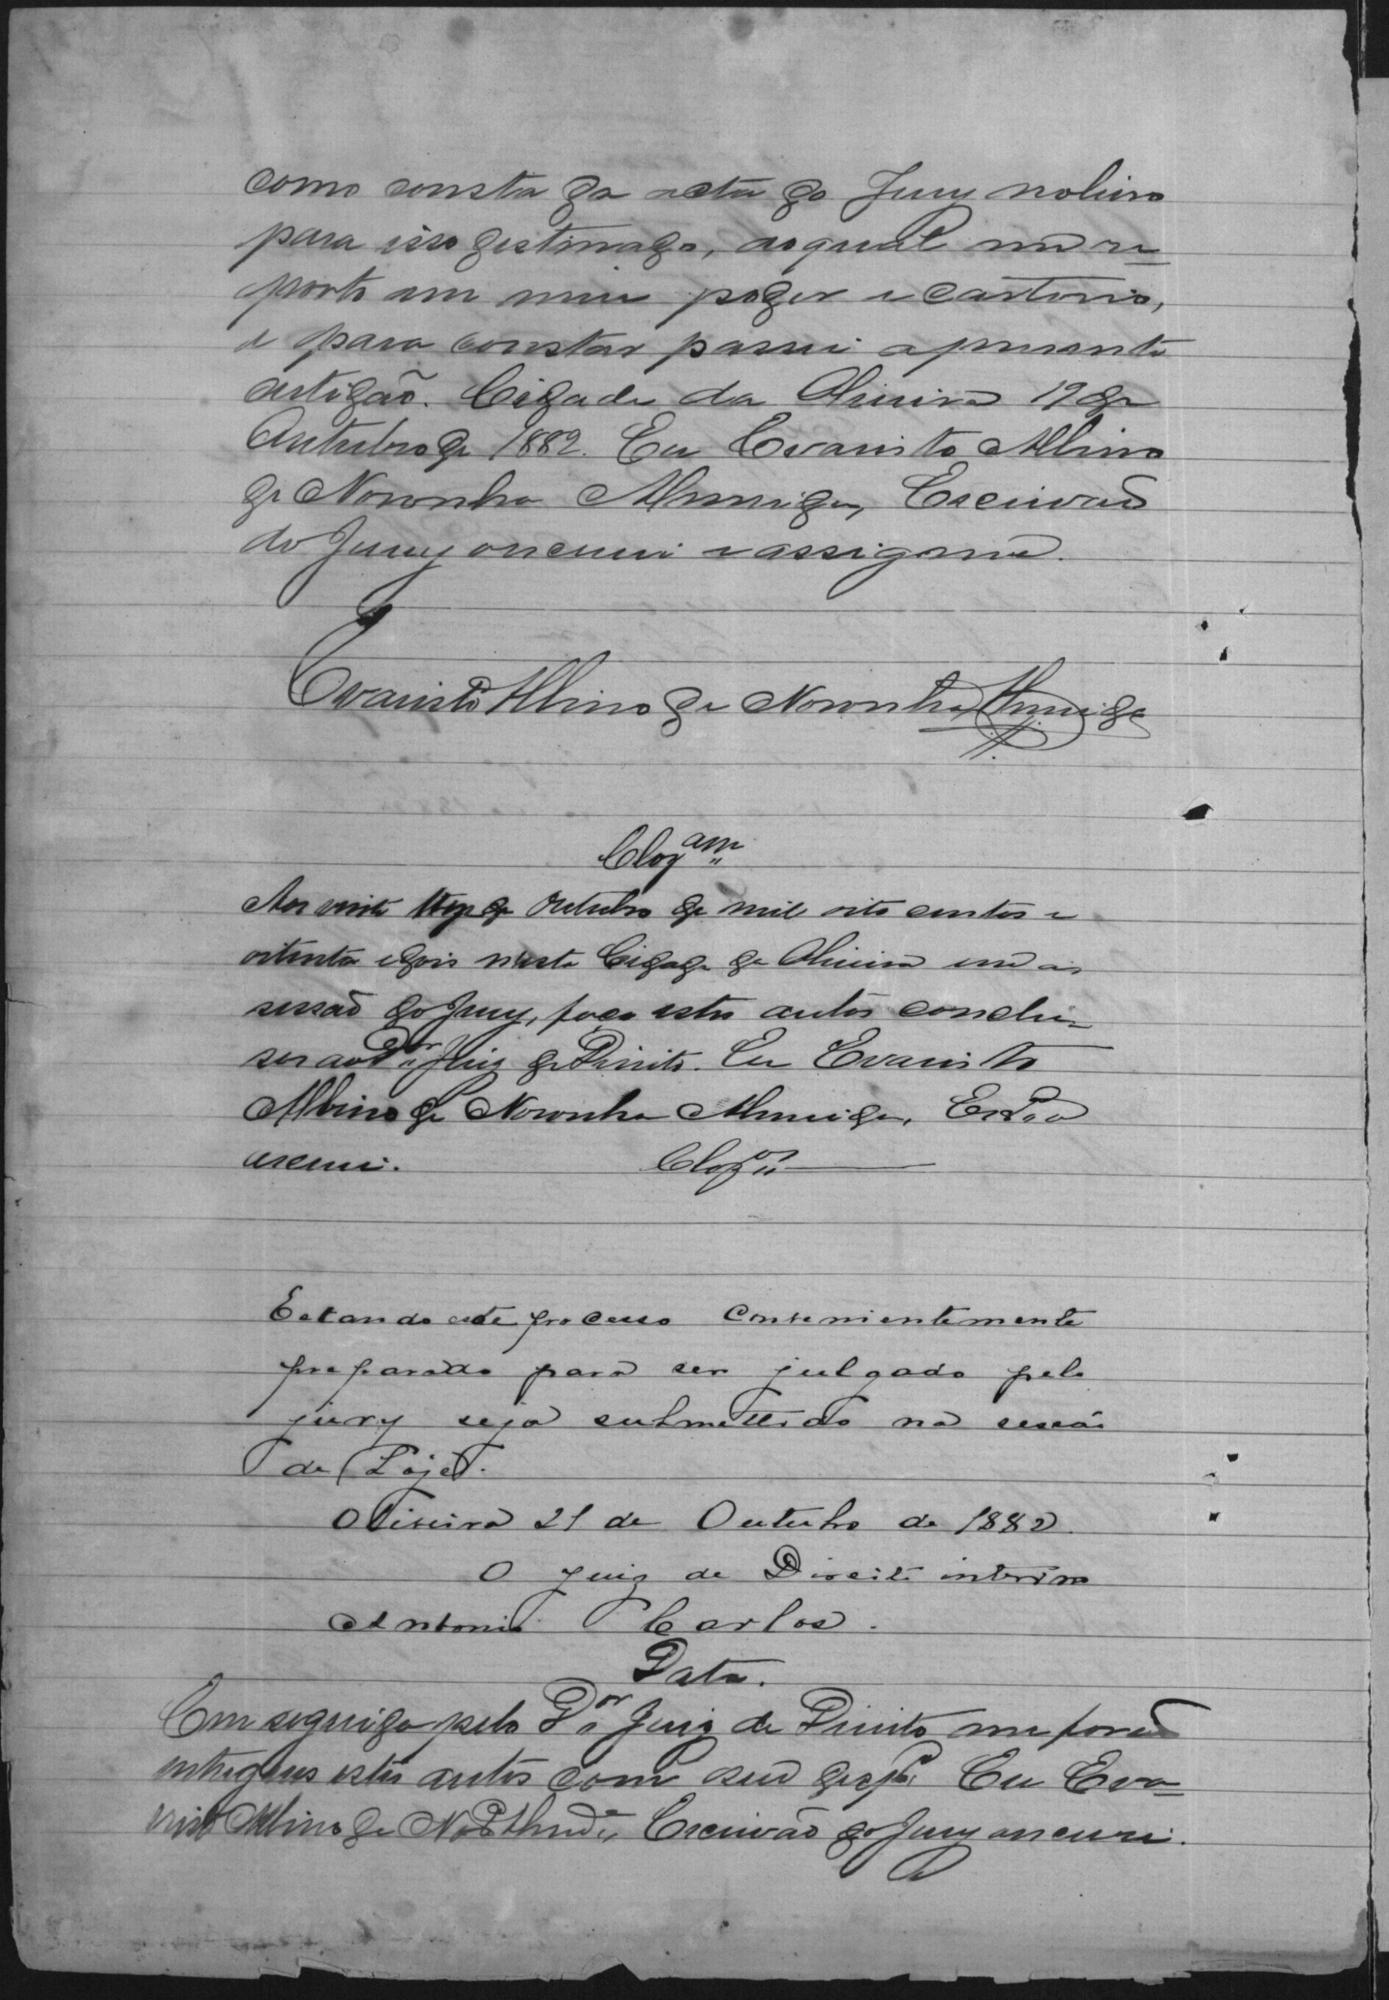 como consta da acta do Jury no livro
para isso destinado, ao qual me re-
porto em meu poder e cartorio,
e para constar passei a presente
certidão. Cidade da Oliveira 19 de
Outubro de 1882. Eu Evaristo Albino
de Noronha Almeida, Escrivão
do Jury o escrevi e assigno.
Evaristo Albino de Noronha Almeida
Clz.am
Aos vinte de Outubro de mil oito centos e
oitenta e dois nesta Cidade de Oliveira em as
sessão do Jury, faço estes autos conclu-
sos ao Dor Juiz de Direito. Eu Evaristo
Albino de Noronha Almeida, Escrão o
escrevi. Clzos
Estando este processo convenientemente
preparado para ser julgado pelo
jury seja submettido na sessão
de hoje.
Oliveira 21 de Outubro de 1882.
O Juiz de Direito interino
Antonio Carlos.
Data.
Em seguida pelo Dor Juiz de Direito me forão
entregues estes autos com seu despo. Eu Eva-
risto Albino de Noa Almda, Escrivão do Jury o escrevi.